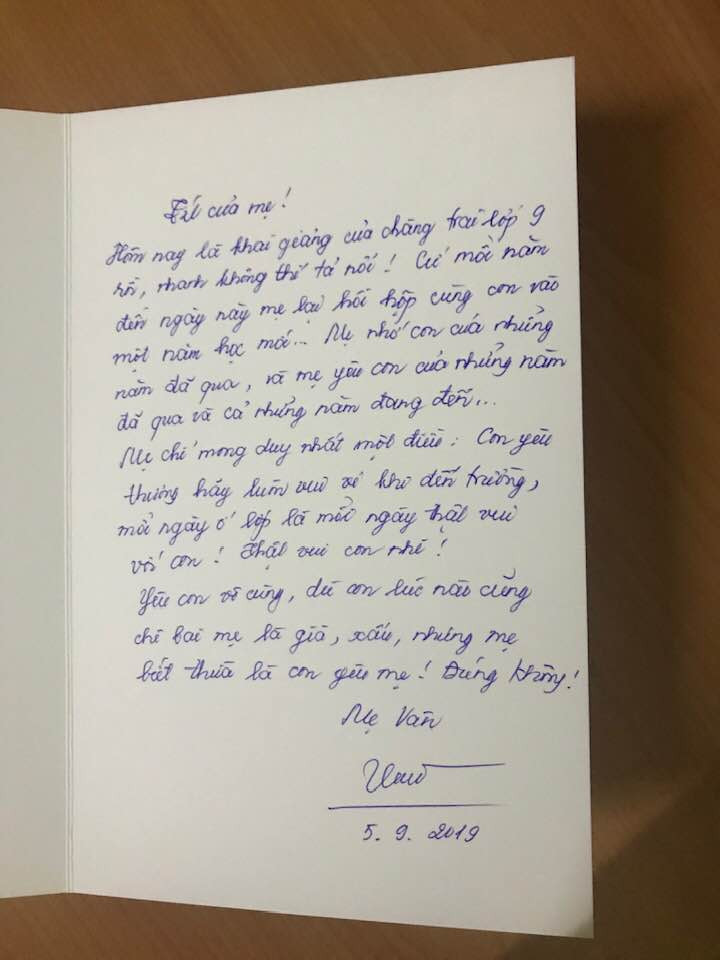 của mẹ!
Hôm nay là khai giảng của chàng trai lớp 9
rồi, nhanh không thể tả nổi! Cứ mỗi năm
đến ngày này mẹ lại hồi hộp cùng con vào
một năm học mới... Mẹ nhớ con của những
năm đã qua, và mẹ yêu con của những năm
đã qua và cả những năm đang đến...
Mẹ chỉ mong duy nhất một điều: Con yêu
thương hãy luôn vui vẻ khi đến trường,
mỗi ngày ở lớp là mỗi ngày thật vui
với con! Thật vui con nhé!
Yêu con vô cùng, dù con lúc nào cũng
chê bai mẹ là già, xấu, nhưng mẹ
biết thừa là con yêu mẹ! Đúng không!
Mẹ Vân
5.9.2019